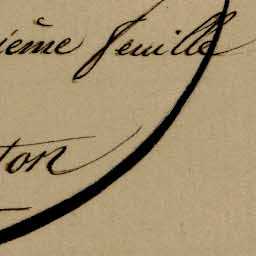 ième feuille
ton